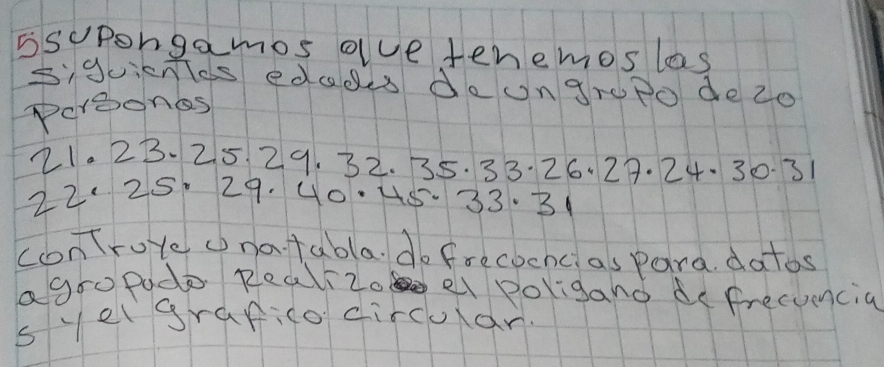 5 supongamos que tenemos las
siguientes edades de un grupo de 20
personas
21. 23. 25. 29. 32. 35. 33. 26. 27. 24. 30. 31
22. 25. 29. 40. 45. 33. 31
controye una tabla. de frecocncias para. datos
agropado Realizo el poligano de frecuencia
s y el grafico circular.